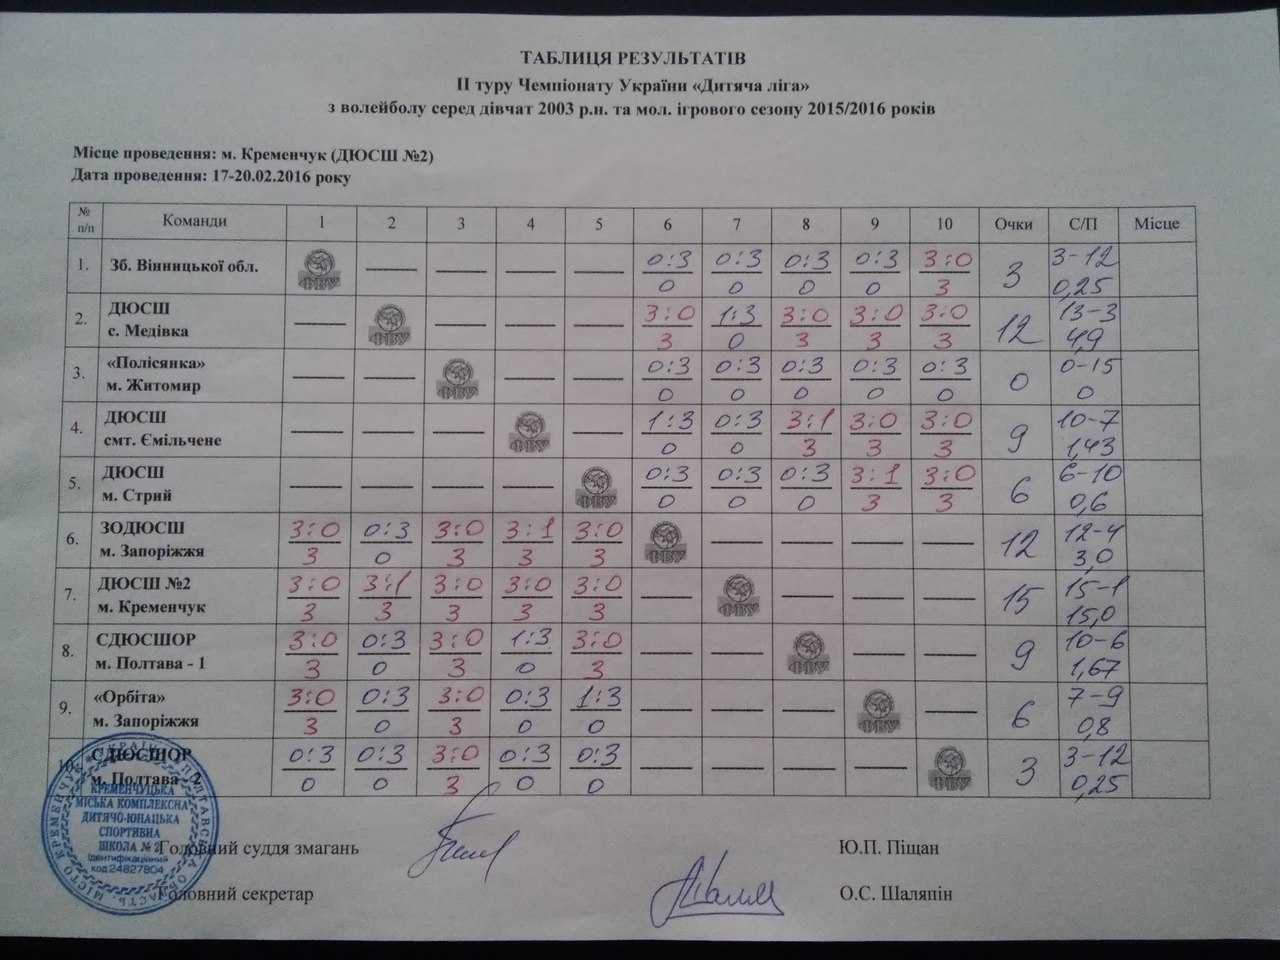 ТАБЛИЦЯ РЕЗУЛЬТАТІВ
ІІ туру Чемпіонату України «Дитяча ліга»
з волейболу серед дівчат 2003 р.н. та мол. ігрового сезону 2015/2016 років
Місце проведення: м. Кременчук (ДЮСШ №2)
Дата проведення: 17-20.02.2016 року
№ п/п Команди 1 2 3 4 5 6 7 8 9 10 Очки С/П Місце
1. Зб. Вінницької обл. ФВУ — — — — 0:3 0:3 0:3 0:3 3:0 3 3-12
0 0 0 0 3 0,25
2. ДЮСШ — ФВУ — — — 3:0 1:3 3:0 3:0 3:0 12 13-3
с. Медівка 3 0 3 3 3 4,9
3. «Полісянка» — — ФВУ — — 0:3 0:3 0:3 0:3 0:3 0 0-15
м. Житомир 0 0 0 0 0 0
4. ДЮСШ — — — ФВУ — 1:3 0:3 3:1 3:0 3:0 9 10-7
смт. Ємільчене 0 0 3 3 3 1,43
5. ДЮСШ — — — — ФВУ 0:3 0:3 0:3 3:1 3:0 6 6-10
м. Стрий 0 0 0 3 3 0,6
6. ЗОДЮСШ 3:0 0:3 3:0 3:1 3:0 ФВУ — — — — 12 12-4
м. Запоріжжя 3 0 3 3 3 3,0
7. ДЮСШ №2 3:0 3:1 3:0 3:0 3:0 — ФВУ — — — 15 15-1
м. Кременчук 3 3 3 3 3 15,0
8. СДЮСШОР 3:0 0:3 3:0 1:3 3:0 — — ФВУ — — 9 10-6
м. Полтава - 1 3 0 3 0 3 1,67
9. «Орбіта» 3:0 0:3 3:0 0:3 1:3 — — — ФВУ — 6 7-9
м. Запоріжжя 3 0 3 0 0 0,8
10. СДЮСШОР 0:3 0:3 3:0 0:3 0:3 — — — — ФВУ 3 3-12
м. Полтава - 2 0 0 3 0 0 0,25
КРЕМЕНЧУЦЬКА
МІСЬКА КОМПЛЕКСНА
ДИТЯЧО-ЮНАЦЬКА
СПОРТИВНА
ШКОЛА № 2
ідентифікаційний
код 24827804
Головний суддя змагань Ю.П. Піщан
Головний секретар О.С. Шаляпін